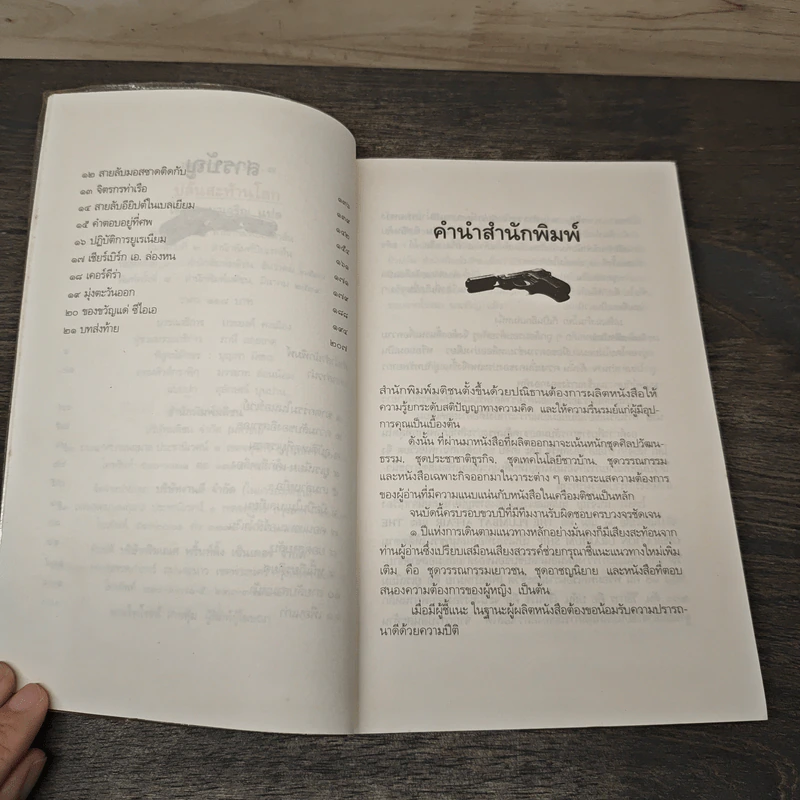 ๑๒ สายลับมอสซาดติดกับ
๑๓ จิตรกรท่าเรือ
๑๔ สายลับอียิปต์ในเบลเยียม
๑๕ คำตอบอยู่ที่ศพ
๑๖ ปฏิบัติการยูเรเนียม
๑๗ เชียร์เบิร์ก เอ. ล่องหน
๑๘ เคอร์คีร่า
๑๙ มุ่งตะวันออก
๒๐ ของขวัญแด่ ซีไอเอ
๒๑ บทส่งท้าย
๑๔๒
๑๕๔
๑๖๑
๑๗๑
๑๗๙
๑๘๘
๑๙๔
๒๐๗
คำนำสำนักพิมพ์
สำนักพิมพ์มติชนตั้งขึ้นด้วยปณิธานต้องการผลิตหนังสือให้
ความรู้ยกระดับสติปัญญาทางความคิด และให้ความรื่นรมย์แก่ผู้มีอุป-
การคุณเป็นเบื้องต้น
ดังนั้น ที่ผ่านมาหนังสือที่ผลิตออกมาจะเน้นหนักชุดศิลปวัฒน-
ธรรม, ชุดประชาชาติธุรกิจ, ชุดเทคโนโลยีชาวบ้าน, ชุดวรรณกรรม
และหนังสือเฉพาะกิจออกมาในวาระต่าง ๆ ตามกระแสความต้องการ
ของผู้อ่านที่มีความแนบแน่นกับหนังสือในเครือมติชนเป็นหลัก
จนบัดนี้ครบรอบขวบปีที่มีทีมงานรับผิดชอบครบวงจรชัดเจน
๑ ปีแห่งการเดินตามแนวทางหลักอย่างมั่นคงก็มีเสียงสะท้อนจาก
ท่านผู้อ่านซึ่งเปรียบเสมือนเสียงสวรรค์ช่วยกรุณาชี้แนะแนวทางใหม่เพิ่ม
เติม คือ ชุดวรรณกรรมเยาวชน, ชุดอาชญนิยาย และหนังสือที่ตอบ
สนองความต้องการของผู้หญิง เป็นต้น
เมื่อมีผู้ชี้แนะ ในฐานะผู้ผลิตหนังสือต้องขอน้อมรับความปรารถ-
นาดีด้วยความปีติ